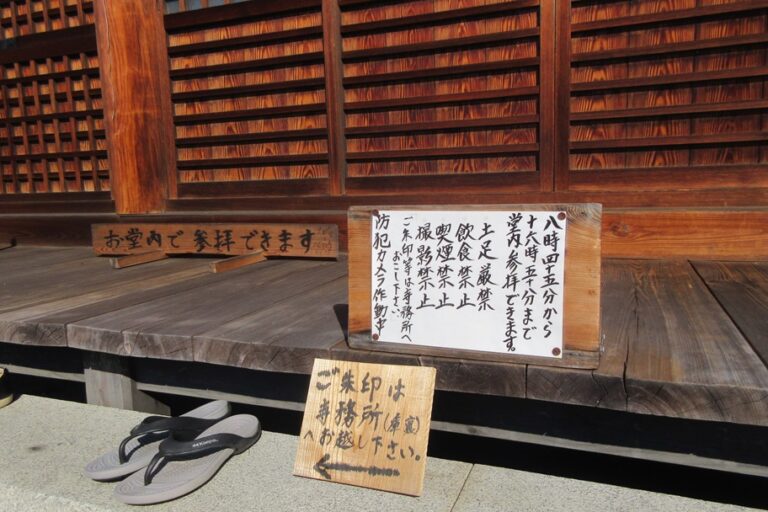 お堂内で参拝できます
八時四十五分から
十六時五十分まで
堂内参拝できます。
土足厳禁
飲食禁止
喫煙禁止
撮影禁止
ご朱印等は寺務所へ
おこし下さい。
防犯カメラ作動中
ご朱印は
寺務所(庫裏)
へお越し下さい。